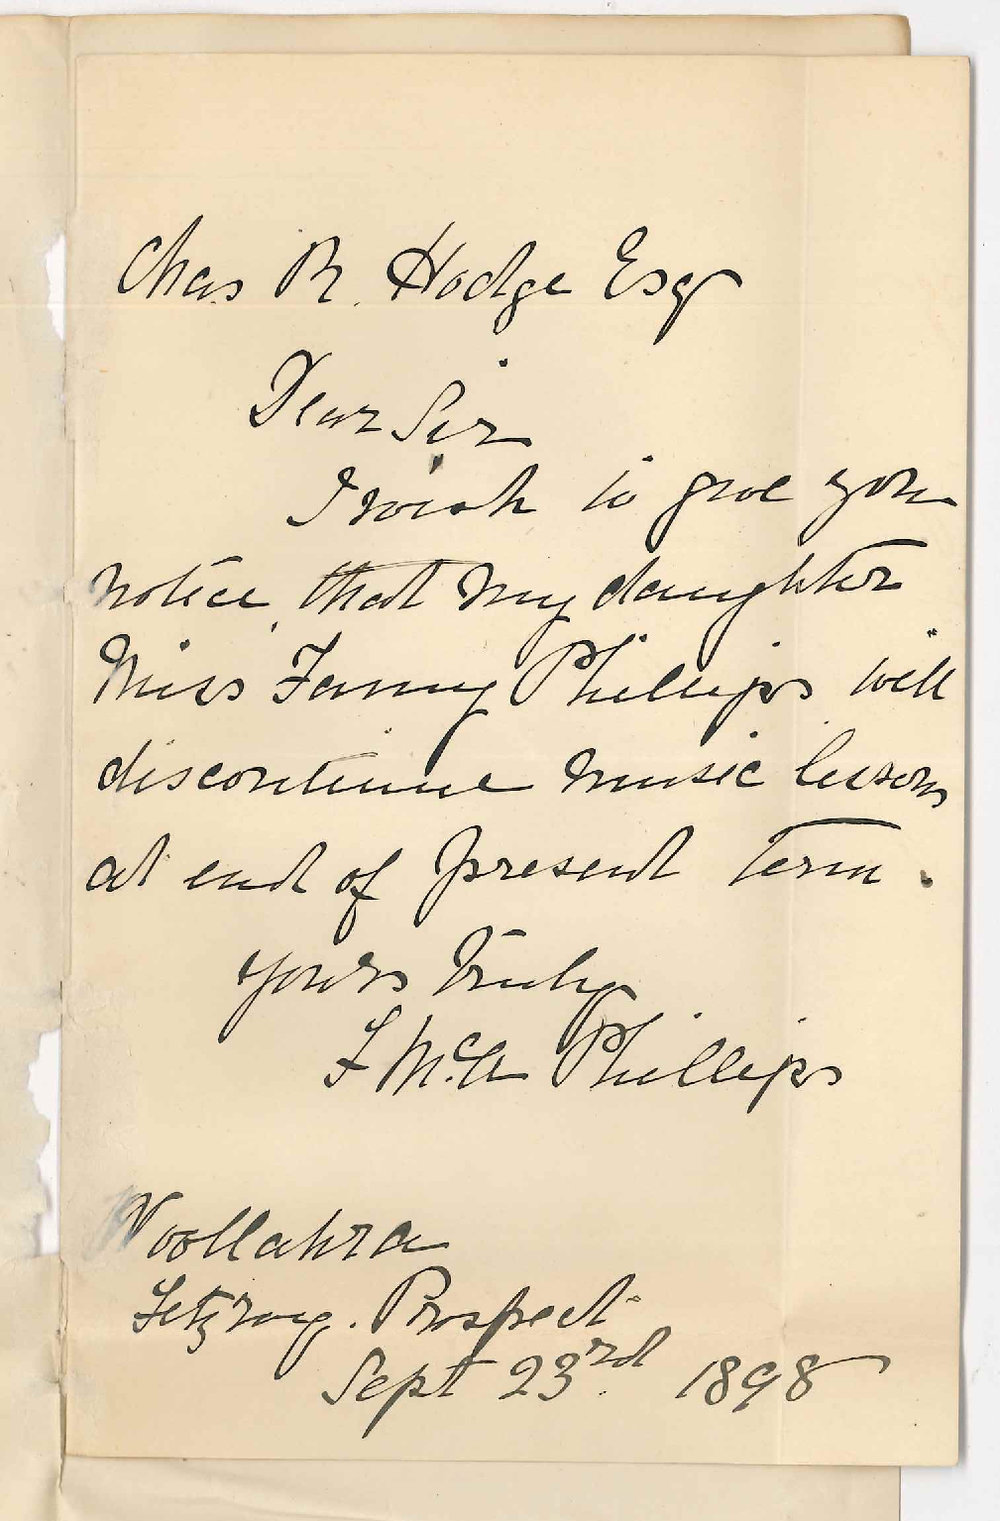 Chas R. Hodge Esq
Dear Sir
I wish to give you
notice that my daughter
Miss Fanny Phillips will
discontinue music lessons
at end of present Term.
Yours Truly
F McA Phillips
Woollahra
Fitzroy. Prospect
Sept 23rd 1898